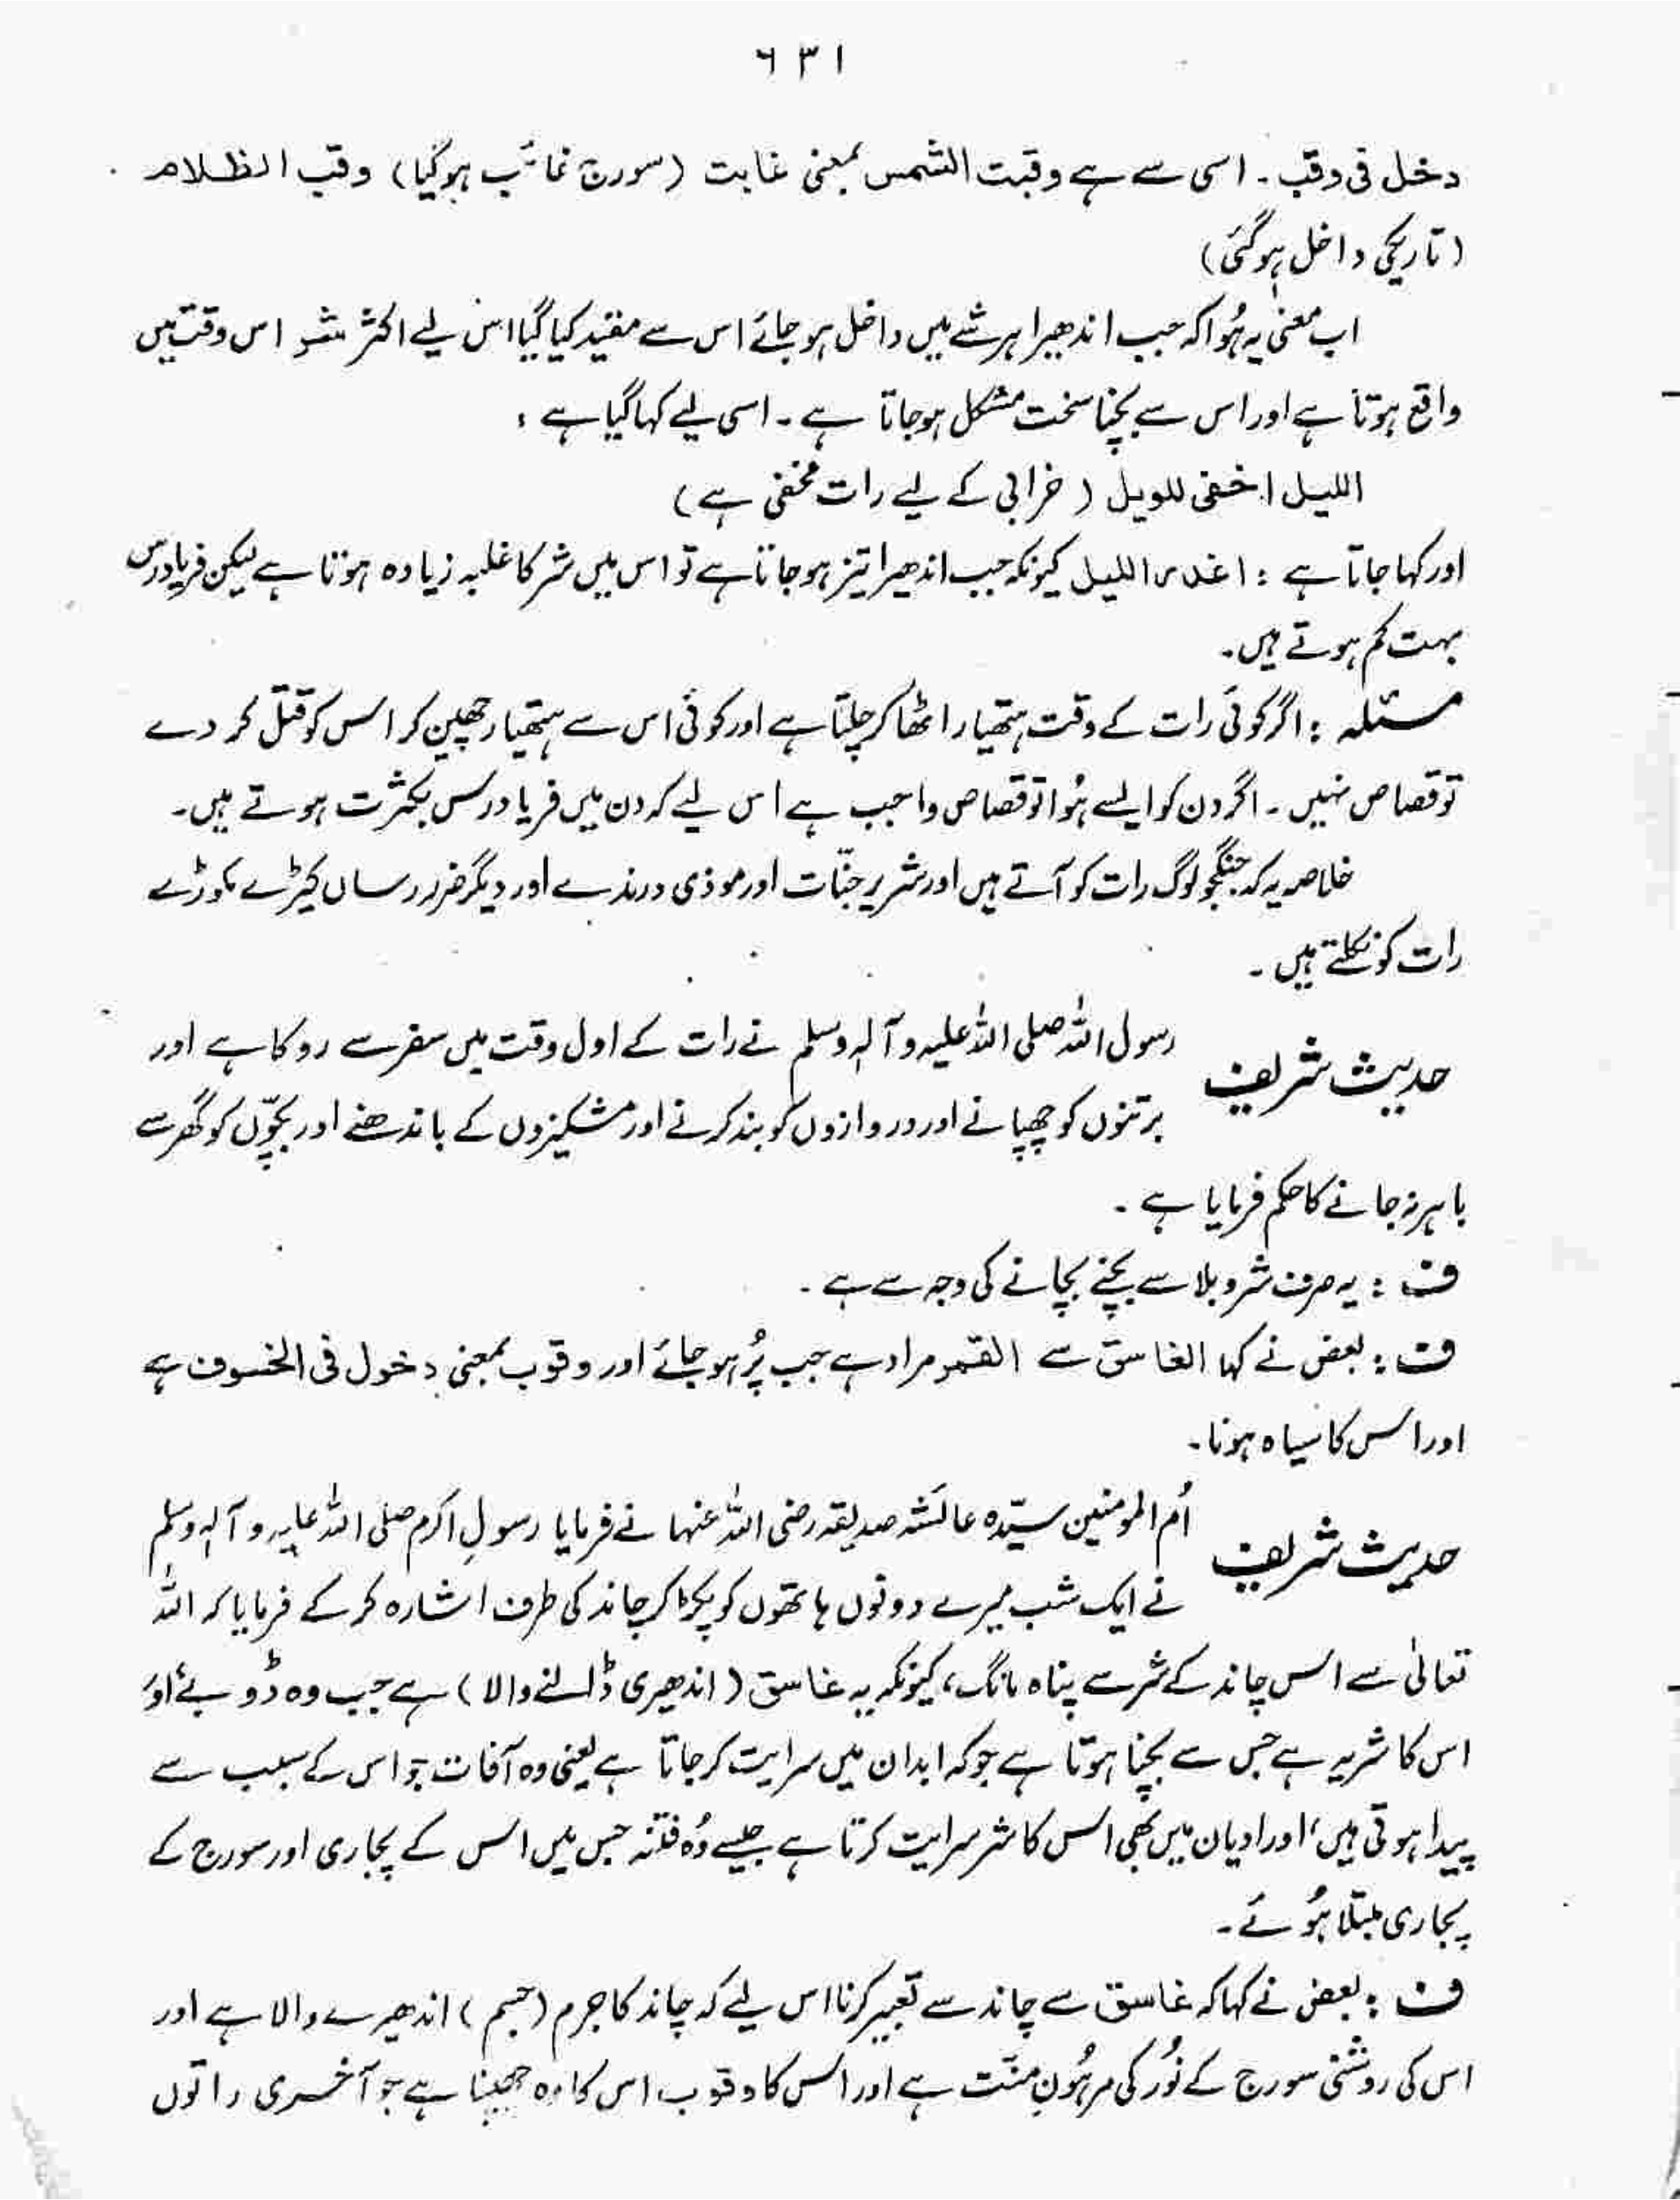 ٦٣١
دخل فی وقب ۔ اسی سے ہے وقبت الشمس بمعنی غابت (سورج غائب ہوگیا) وقب الظلام
(تاریکی داخل ہوگئی)
اب معنیٰ یہ ہُوا کہ جب اندھیرا ہر شے میں داخل ہو جائے اس سے مقید کیا گیا اس لیے اکثر شر اس وقت میں
واقع ہوتا ہے اور اس سے بچنا سخت مشکل ہو جاتا ہے ۔ اسی لیے کہا گیا ہے :
الليل اخفى للويل (خرابی کے لیے رات مخفی ہے)
اور کہا جاتا ہے : اغدر الليل کیونکہ جب اندھیرا تیز ہو جاتا ہے تو اس میں شر کا غلبہ زیادہ ہوتا ہے لیکن فریادرس
بہت کم ہوتے ہیں۔
مسئلہ : اگر کوئی رات کے وقت ہتھیار اٹھا کر چلتا ہے اور کوئی اس سے ہتھیار چھین کر اس کو قتل کر دے
تو قصاص نہیں ۔ اگر دن کو ایسے ہُوا تو قصاص واجب ہے اس لیے کہ دن میں فریادرس بکثرت ہوتے ہیں۔
خلاصہ یہ کہ جنگجو لوگ رات کو آتے ہیں اور شریر جنّات اور موذی درندے اور دیگر ضرر رساں کیڑے مکوڑے
رات کو نکلتے ہیں ۔
حدیث شریف رسول اللہ صلی اللہ علیہ وآلہٖ وسلم نے رات کے اول وقت میں سفر سے روکا ہے اور
برتنوں کو چھپانے اور دروازوں کو بند کرنے اور مشکیزوں کے باندھنے اور بچّوں کو گھر سے
باہر نہ جانے کا حکم فرمایا ہے ۔
ف : یہ صرف شر و بلا سے بچنے بچانے کی وجہ سے ہے ۔
ف : بعض نے کہا الغاسق سے القمر مراد ہے جب پُر ہو جائے اور وقوب بمعنی دخول فی الخسوف ہے
اور اس کا سیاہ ہونا۔
حدیث شریف اُم المومنین سیّدہ عائشہ صدیقہ رضی اللہ عنہا نے فرمایا رسولِ اکرم صلی اللہ علیہ وآلہٖ وسلم
نے ایک شب میرے دونوں ہاتھوں کو پکڑ کر چاند کی طرف اشارہ کر کے فرمایا کہ اللہ
تعالیٰ سے اس چاند کے شر سے پناہ مانگ، کیونکہ یہ غاسق (اندھیری ڈالنے والا) ہے جب وہ ڈوبے اور
اس کا شر یہ ہے جس سے بچنا ہوتا ہے جو کہ ابدان میں سرایت کر جاتا ہے یعنی وہ آفات جو اس کے سبب سے
پیدا ہوتی ہیں، اور ادیان میں بھی اس کا شر سرایت کرتا ہے جیسے وُہ فتنہ جس میں اس کے پجاری اور سورج کے
پجاری مبتلا ہُوئے۔
ف : بعض نے کہا کہ غاسق سے چاند سے تعبیر کرنا اس لیے کہ چاند کا جرم (جسم) اندھیرے والا ہے اور
اس کی روشنی سورج کے نُور کی مرہُونِ منّت ہے اور اس کا وقوب اس کا وہ چھپنا ہے جو آخری راتوں